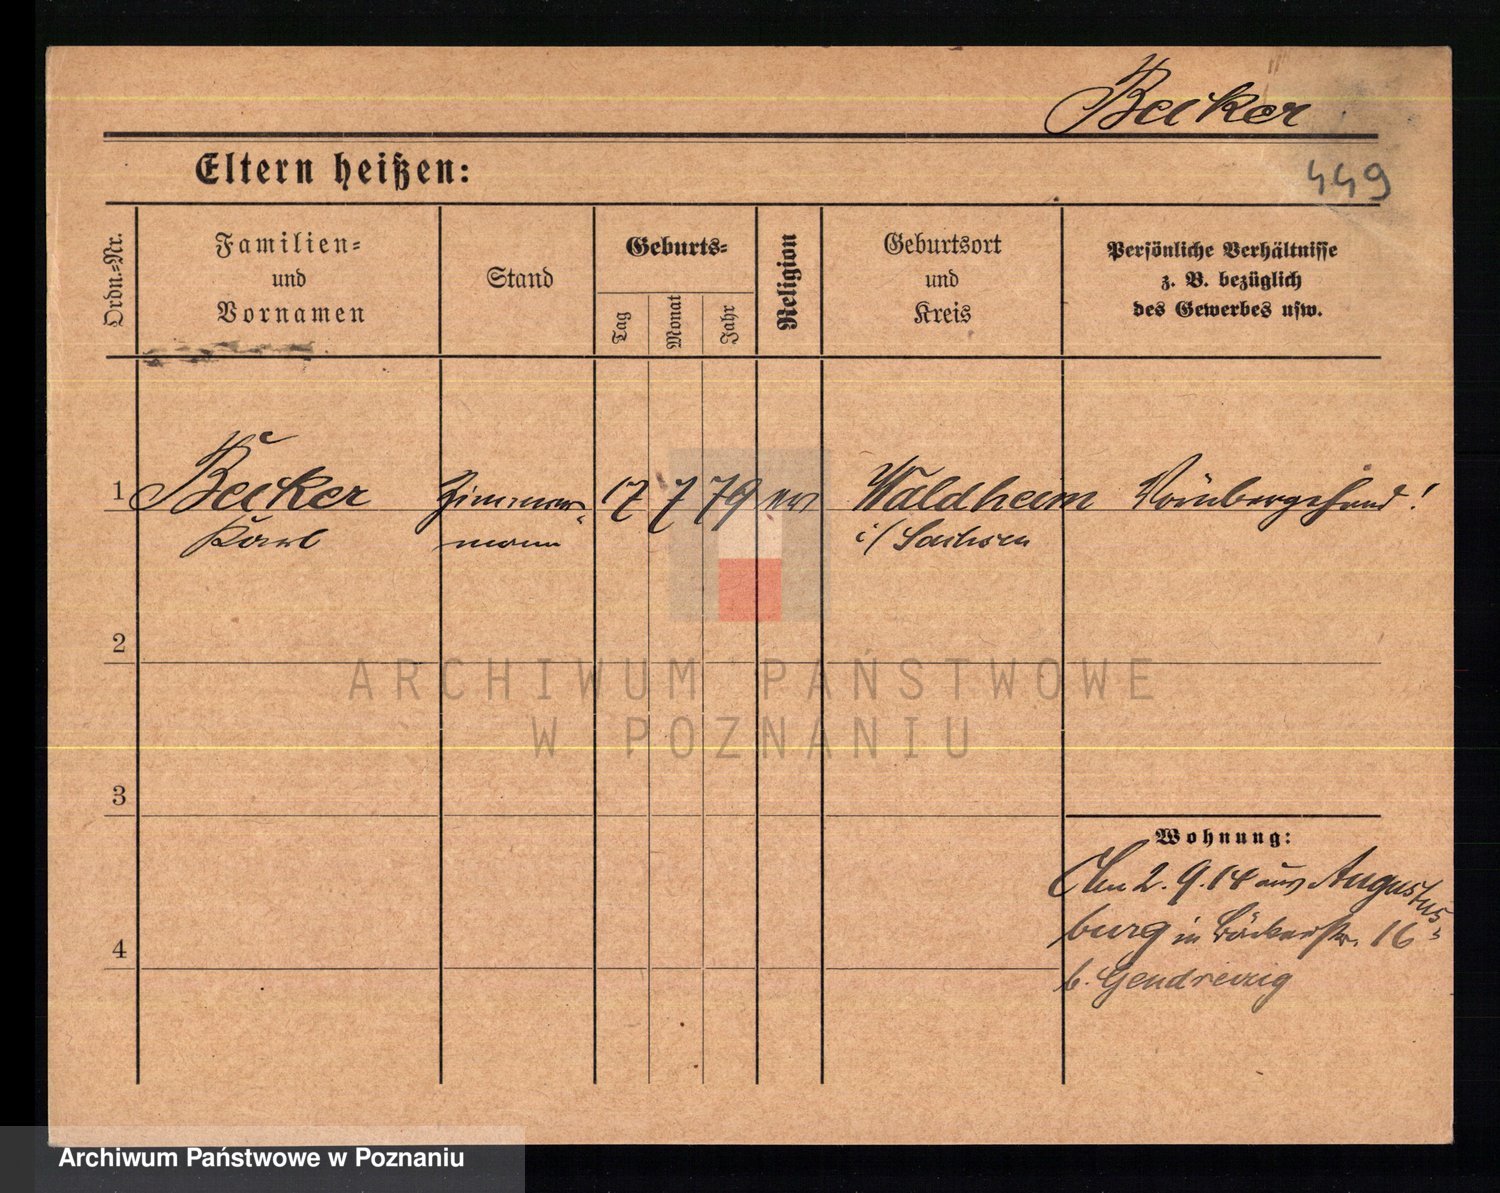 Becker
449
Eltern heißen:
Ordn.-Nr.
Familien-
und
Vornamen
Stand
Geburts-
Tag
Monat
Jahr
Religion
Geburtsort
und
Kreis
Persönliche Verhältnisse
z. B. bezüglich
des Gewerbes usw.
1 Becker Zimmer- 17 7 79 ev Waldheim Vorübergehend!
Karl mann i/ Sachsen
2
ARCHIWUM PAŃSTWOWE
W POZNANIU
3
Wohnung:
Am 2.9.14 aus Augustus-
burg in Bäckerstr. 16
4
b. Gendreizig
Archiwum Państwowe w Poznaniu